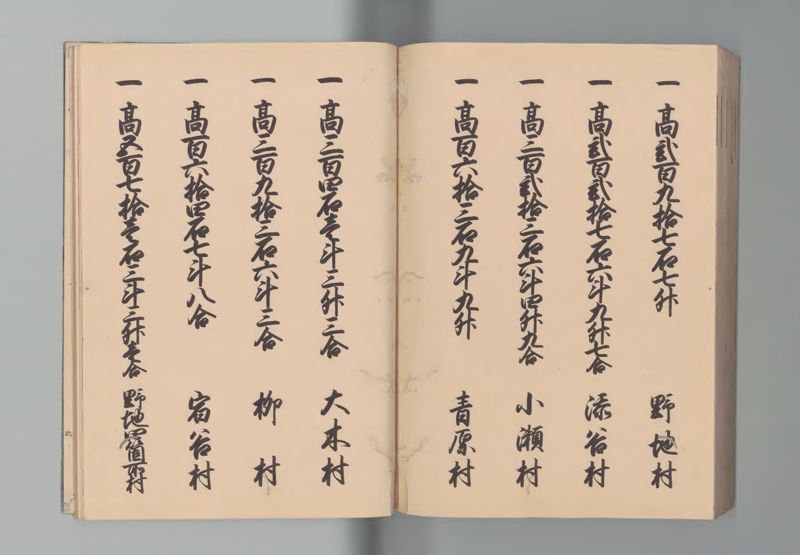 一 高弐百九拾七石七升 野地村
一 高弐百弐拾七石六斗九升七合 添谷村
一 高三百弐拾三石六斗四升九合 小瀬村
一 高百六拾三石九斗九升 青原村
一 高三百四石壱斗三升三合 大木村
一 高三百九拾三石六斗三合 柳村
一 高百六拾四石七斗八合 宿谷村
一 高五百七拾壱石三斗三升壱合 野地四箇所村